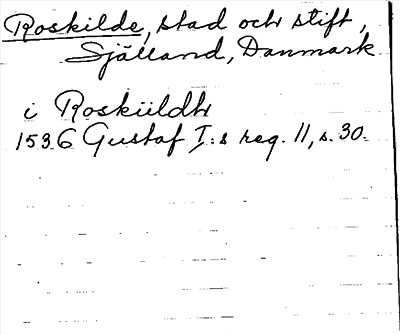 Roskilde, stad och stift,
Själland, Danmark
i Roskiildhr
1536 Gustaf I:s reg. 11, s. 30.